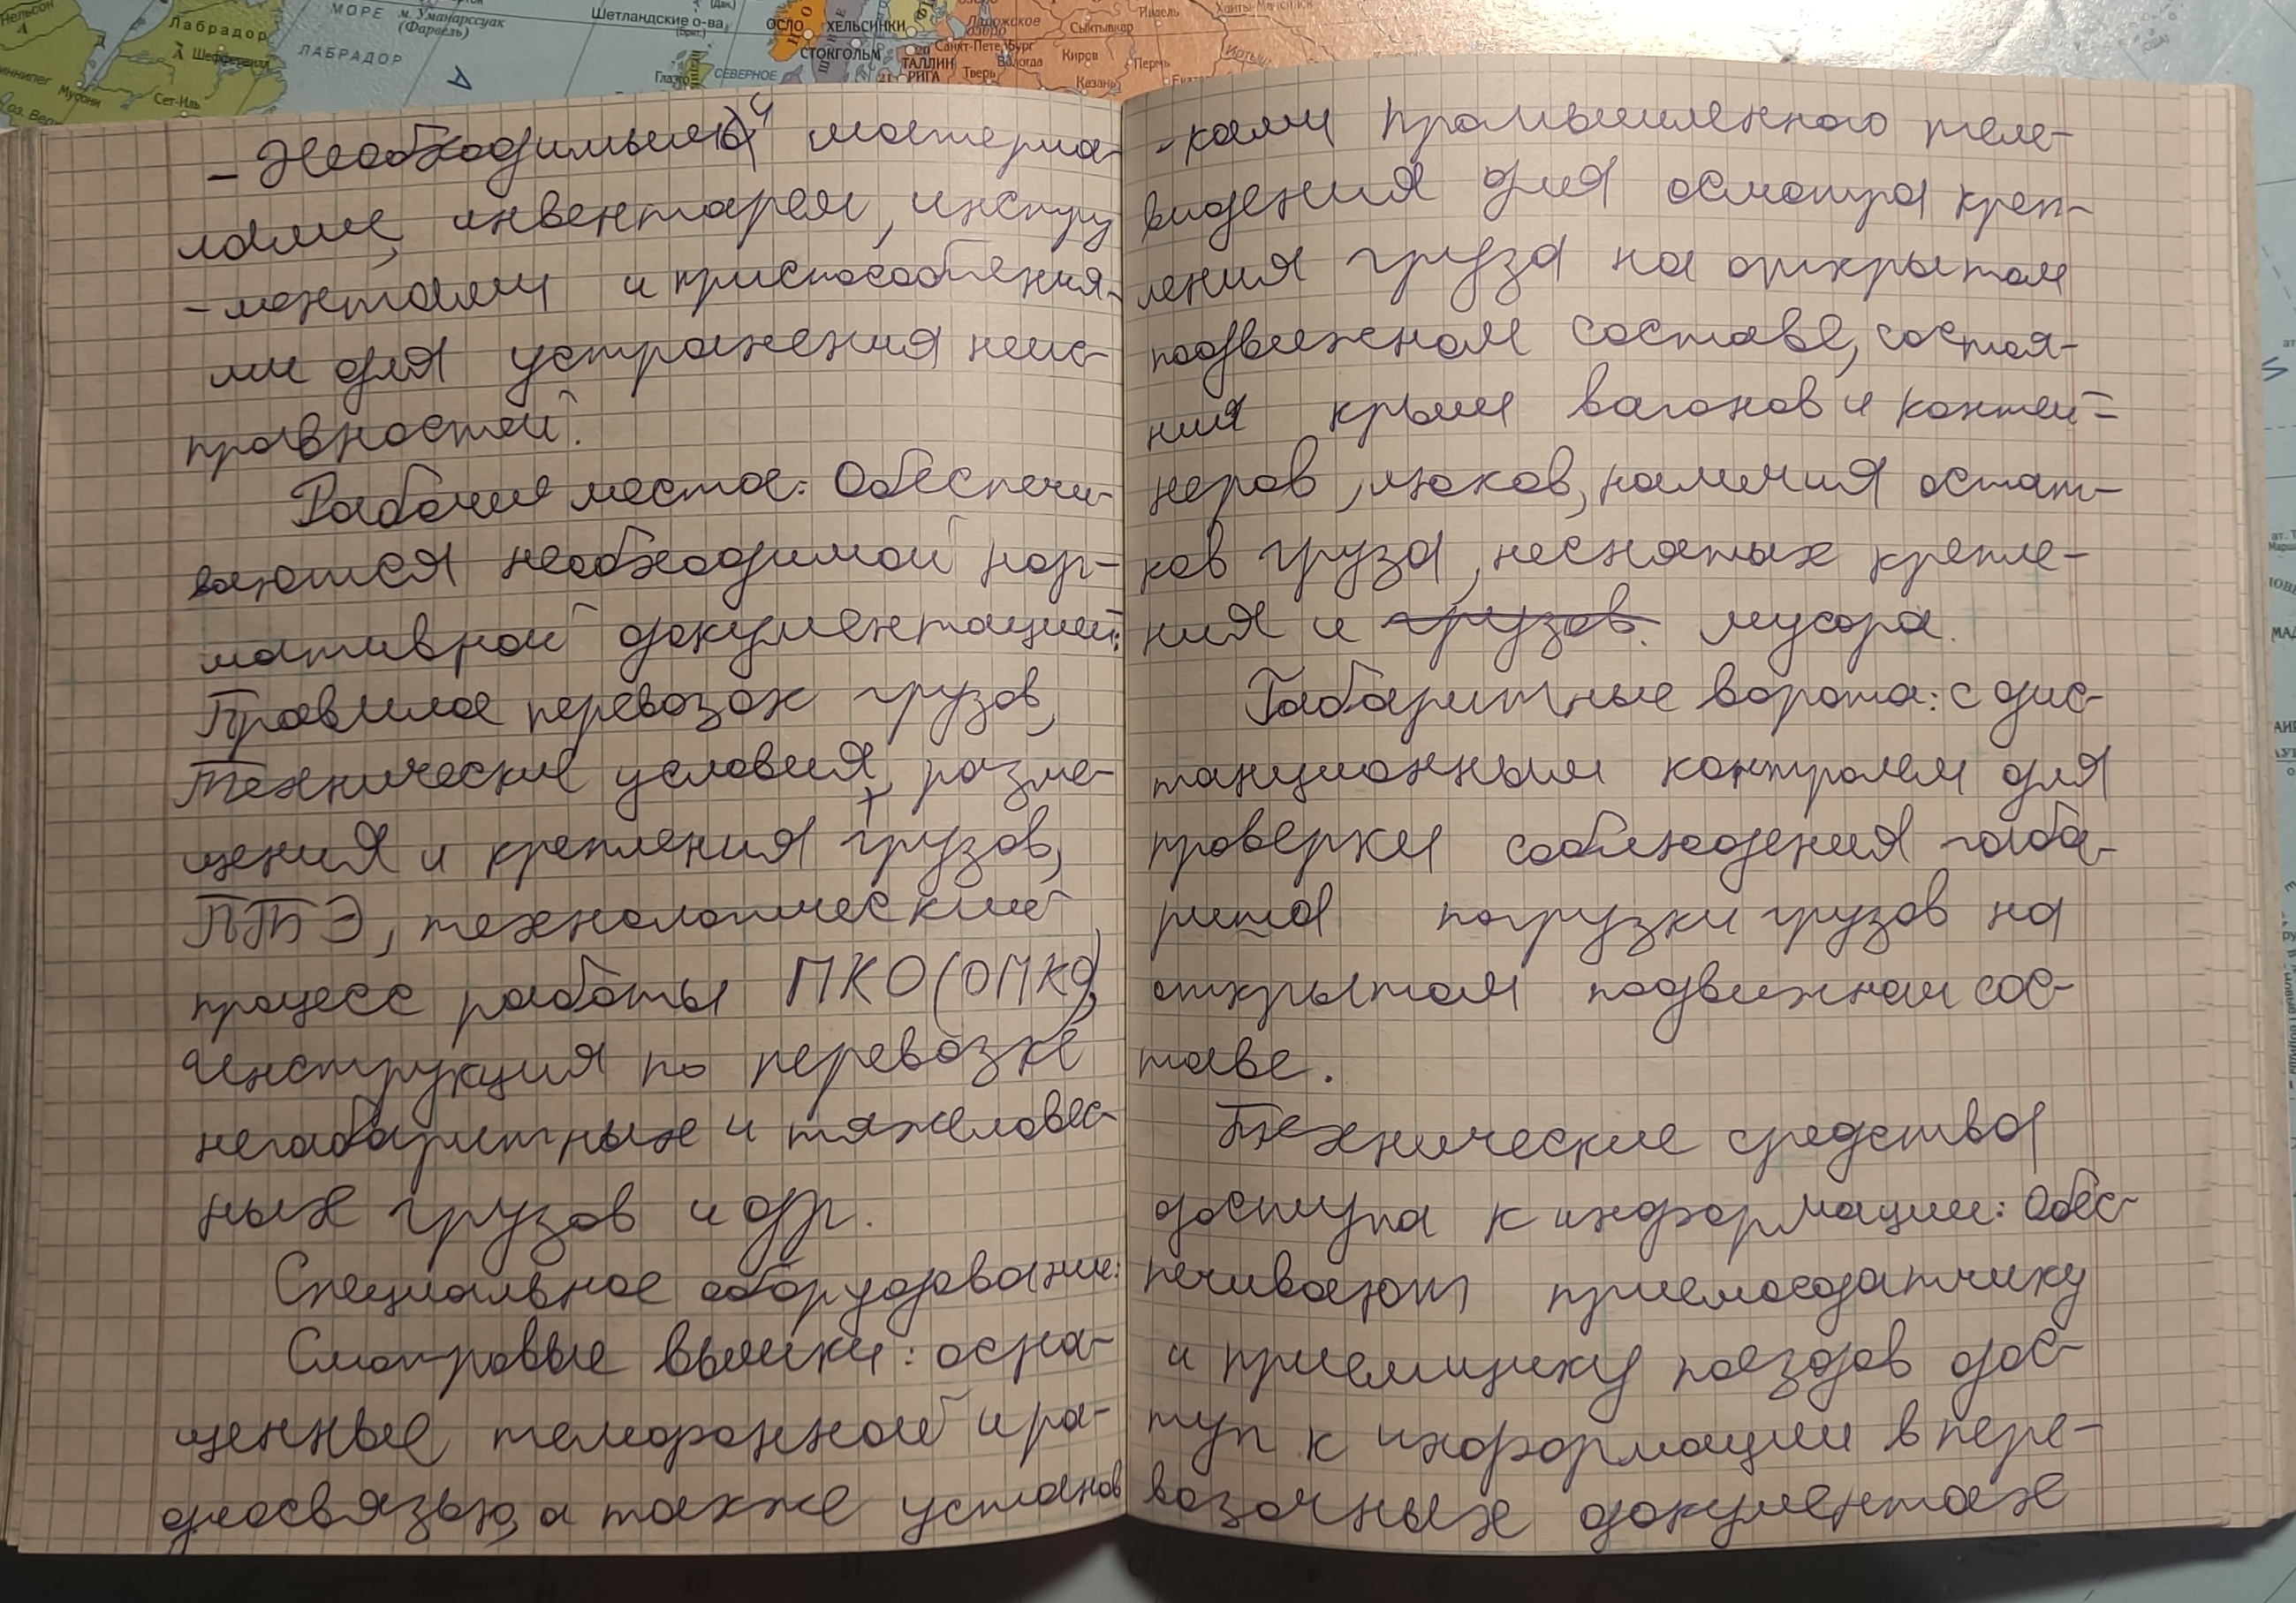 МОРЕ
м. Уманарссуак
(Фарвель)
Шетландские о-ва
(Брит.)
Лабрадор
Шеффервилл
ЛАБРАДОР
Сет-Иль
Глазго
СЕВЕРНОЕ
ОСЛО
ХЕЛЬСИНКИ
СТОКГОЛЬМ
ТАЛЛИН
РИГА
Ладожское
озеро
Санкт-Петербург
Вологда
Тверь
Сыктывкар
Киров
Казань
Пермь
Ивдель
Ханты-Мансийск
Иртыш
- Необходимыми материа-
лами, инвентарем, инстру
-ментами и приспособления-
ми для устранения неис-
правностей.
Рабочие места: Обеспечи-
ваются необходимой нор-
мативной документацией:
Правила перевозок грузов,
Технические условия разме-
щения и крепления грузов,
ПТЭ, технологический
процесс работы ПКО (ОПКО),
Инструкция по перевозке
негабаритных и тяжеловес-
ных грузов и др.
Специальное оборудование:
Смотровые вышки: осна-
щенные телефонной и ра-
диосвязью, а также установ
-ками промышленного теле-
видения для осмотра креп-
ления груза на открытом
подвижном составе, состоя-
ния крыш вагонов и контей-
неров, люков, наличия остат-
ков груза, неснятых крепле-
ния и грузов. мусора.
Габаритные ворота: с дис-
танционным контролем для
проверки соблюдения габа-
рита погрузки грузов на
открытом подвижном сос-
таве.
Технические средства
доступа к информации: Обес-
печивают приемосдатчику
и приемщику поездов дос-
туп к информации в пере-
возочных документах